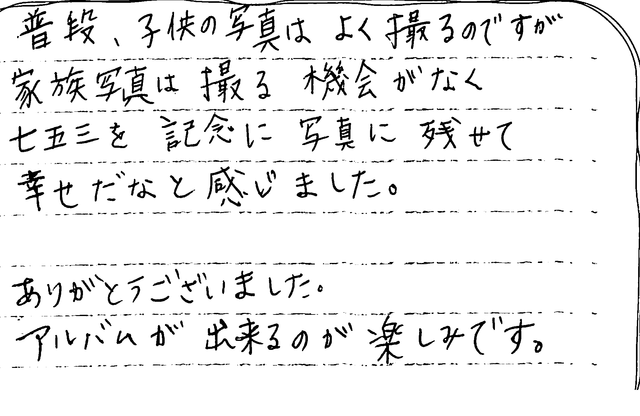 普段、子供の写真は よく撮るのですが
家族写真は 撮る 機会がなく
七五三を 記念に 写真に 残せて
幸せだなと感じました。
ありがとうございました。
アルバムが 出来るのが 楽しみです。